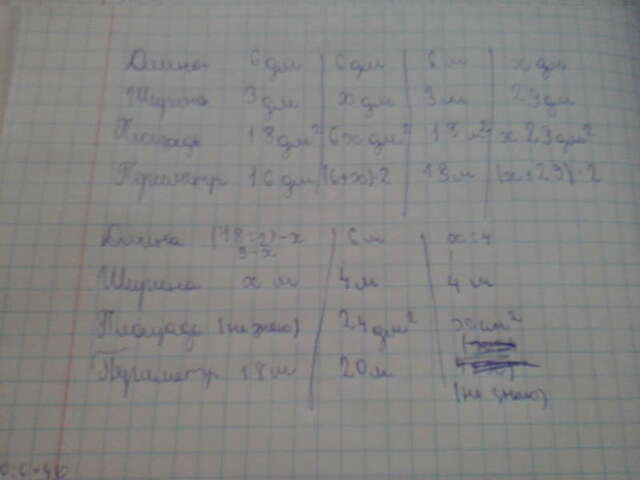 Длина 6 дм 6 дм 6 м х дм
Ширина 3 дм х дм 3 м 23 дм
Площадь 18 дм² 6х дм² 18 м² х 23 дм²
Периметр 16 дм (6+х)·2 18 м (х+23)·2
Длина (18:2)-х 6 м х:4
9-х
Ширина х м 4 м 4 м
Площадь (не знаю) 24 дм² м²
Периметр 18 м 20 м
(не знаю)